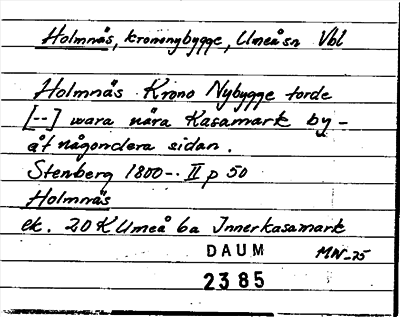 Holmnäs, krononybygge, Umeå sn Vbl
Holmnäs Krono Nybygge torde
[--] wara nära Kasamark by-
åt någondera sidan.
Stenberg 1800-. II p 50
Holmnäs
ek. 20 K Umeå 6a Innerkasamark
DAUM MN-75
2385